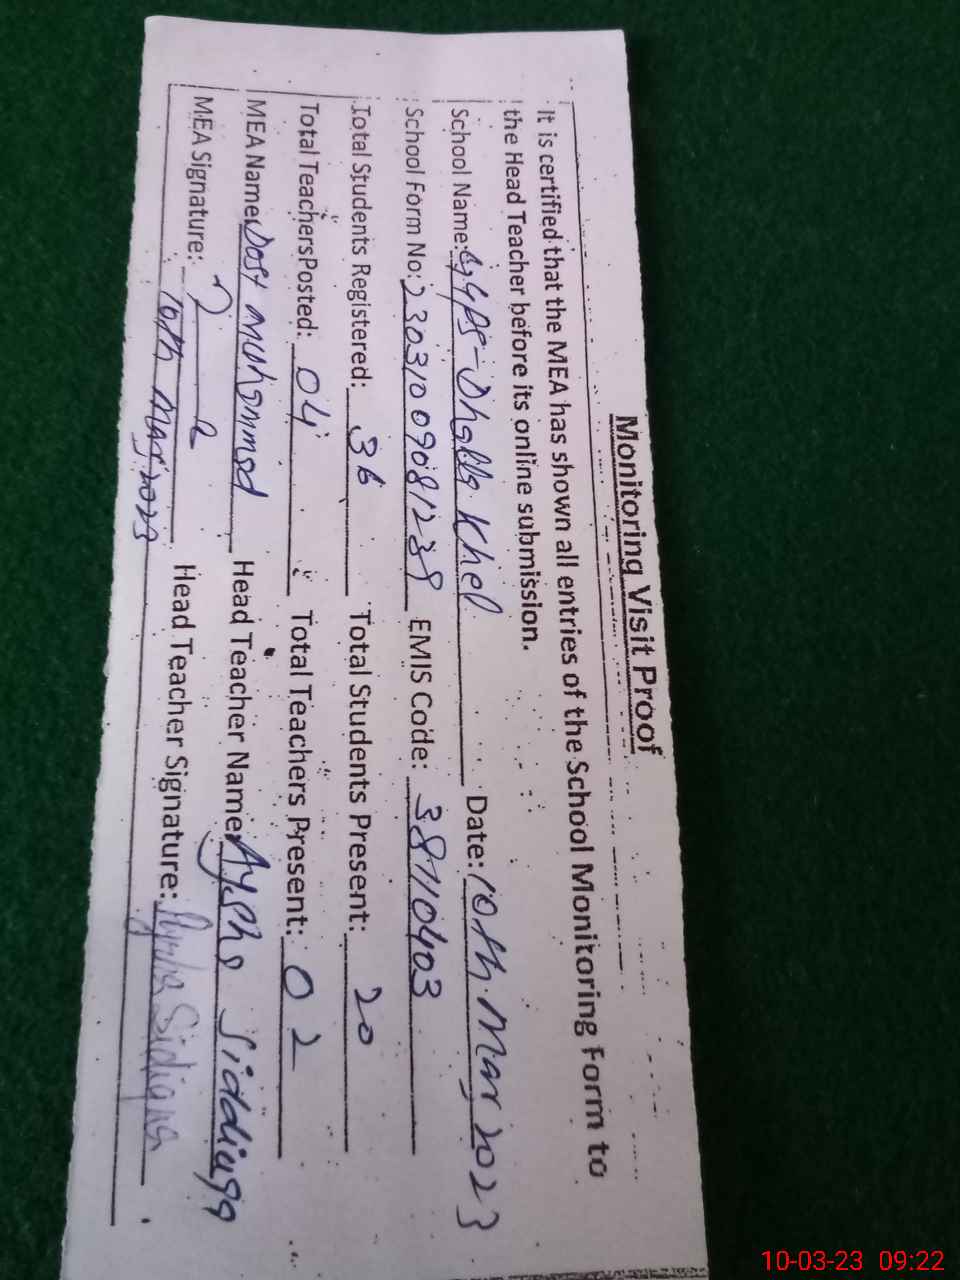 Monitoring Visit Proof
It is certified that the MEA has shown all entries of the School Monitoring Form to
the Head Teacher before its online submission.
School Name: GGPS-Dhalla Khel Date: 10th. Mar 2023
School Form No: EMIS Code: 38710403
Total Students Registered: 36 Total Students Present: 20
Total Teachers Posted: 04 Total Teachers Present: 02
MEA Name: Dost Muhammad Head Teacher Name: Aysha Siddiuqa
MEA Signature: Head Teacher Signature: Aysha Sidiqua
10th Mar 2023
10-03-23 09:22